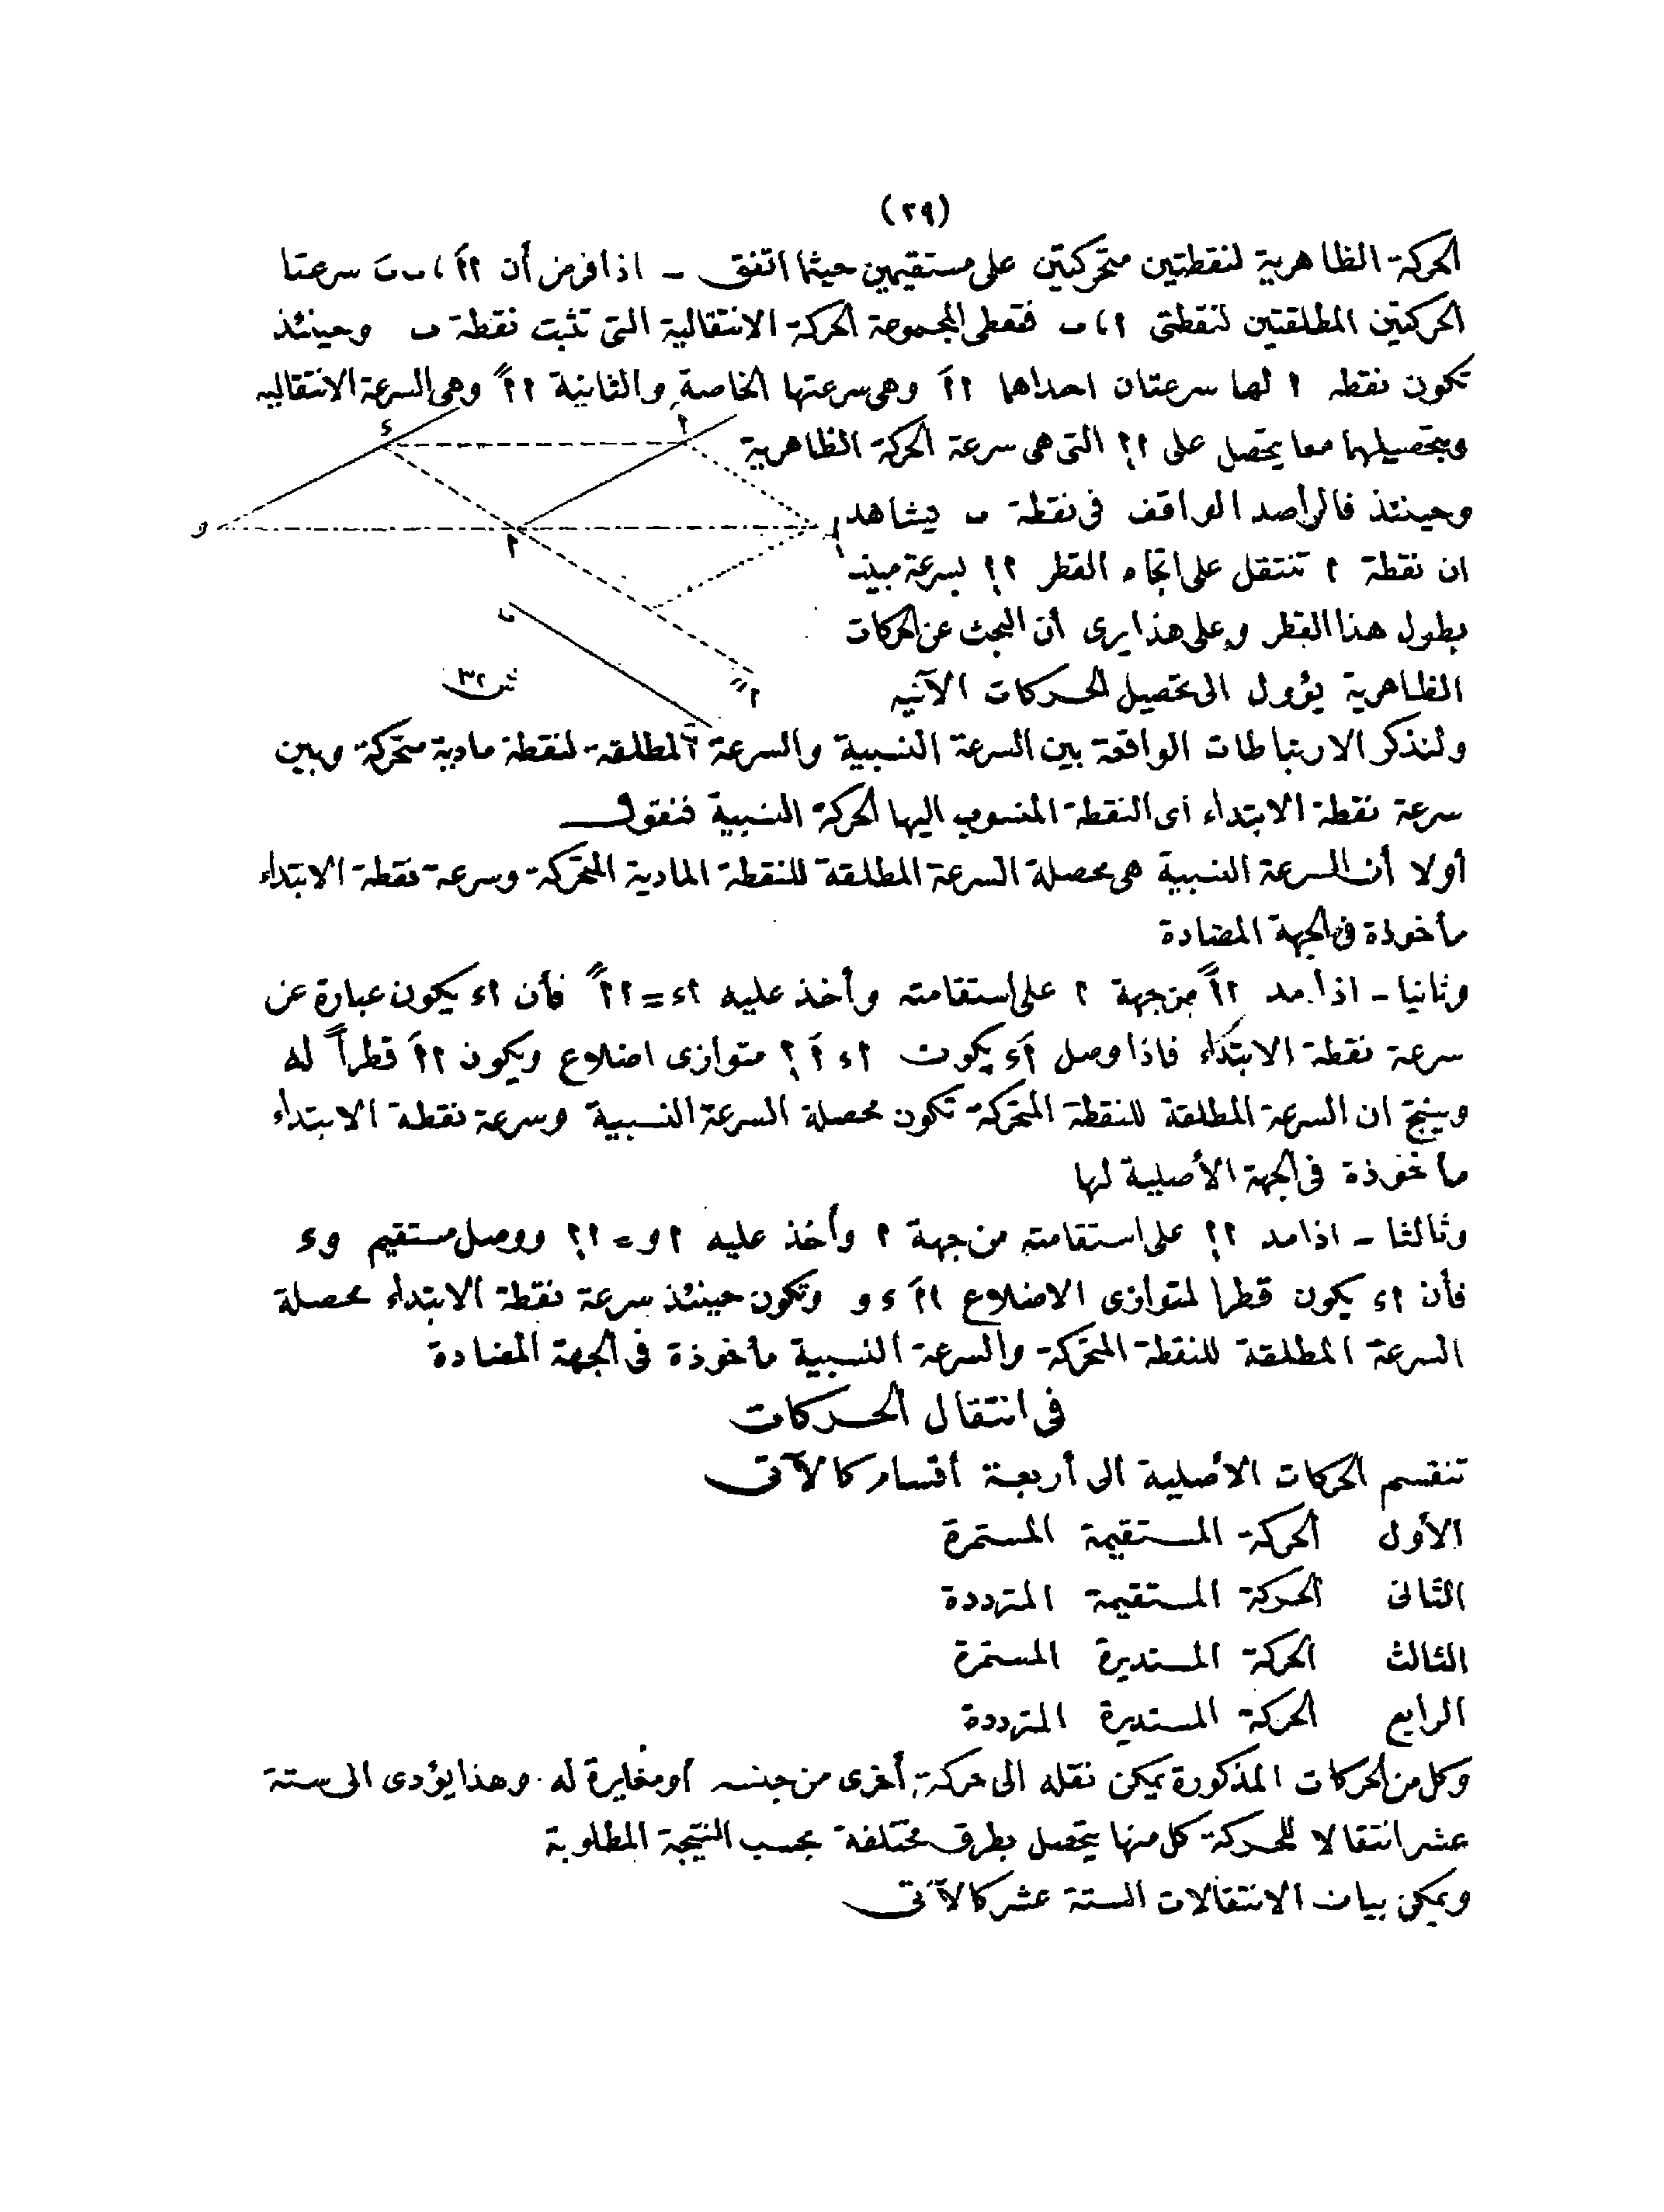 (٢٩)
الحركة الظاهرية لنقطتين متحركتين على مستقيمين حيثما اتفق ـ اذا فرض أن اَا ، ب بَ سرعتا
الحركتين المطلقتين لنقطتى ا ، ب فتعطى المجموعة الحركة الانتقالية التى تثبت نقطة ب وحينئذ
تكون نقطه ا لها سرعتان احداها ااَ وهى سرعتها الخاصة والثانية ااً وهى السرعة الانتقاليه
وبتحصيلهما معا يتحصل على ا؟ التى هى سرعة الحركة الظاهرية
وحينئذ فالراصد الواقف فى نقطة ب يشاهد
ان نقطة ا تنتقل على اتجاه القطر ا؟ بسرعة مبينه
بطول هذا القطر وعلى هذا يرى أن البحث عن الحركات
الظاهرية يؤول الى تحصيل الحركات الآتيه
شكل ٣٢
ولنذكر الارتباطات الواقعة بين السرعة النسبية والسرعة المطلقة لنقطة مادية متحركة وبين
سرعة نقطة الابتداء أى النقطة المنسوب اليها الحركة النسبية فنقول
أولا أن السرعة النسبية هى محصلة السرعة المطلقة للنقطة المادية المتحركة وسرعة نقطة الابتداء
مأخوذة فى الجهة المضادة
وثانيا ـ اذا مد ااً من جهة ا على استقامته وأخذ عليه اء = ااً فأن اء يكون عبارة عن
سرعة نقطة الابتداء فاذا وصل اَء يكون اء اَ ؟ متوازى اضلاع ويكون ااَ قطراً له
وينتج ان السرعة المطلقة للنقطة المتحركة تكون محصلة السرعة النسبية وسرعة نقطة الابتداء
مأخوذة فى الجهة الأصلية لها
وثالثا ـ اذا مد ا؟ على استقامته من جهة ا وأخذ عليه او = ا؟ ووصل مستقيم وء
فأن اء يكون قطرا لمتوازى الاضلاع ااَ ء و وتكون حينئذ سرعة نقطة الابتداء محصلة
السرعة المطلقة للنقطة المتحركة والسرعة النسبية مأخوذة فى الجهة المضادة
فى انتقال الحركات
تنقسم الحركات الأصلية الى أربعة أقسام كالآتى
الأول الحركة المستقيمة المستمرة
الثانى الحركة المستقيمة المترددة
الثالث الحركة المستديرة المستمرة
الرابع الحركة المستديرة المترددة
وكل من الحركات المذكورة يمكن نقله الى حركة أخرى من جنسه أو مغايرة له وهذا يؤدى الى ستة
عشر انتقالا للحركة كل منها يتحصل بطرق مختلفة بحسب النتيجة المطلوبة
ويمكن بيان الانتقالات الستة عشر كالآتى